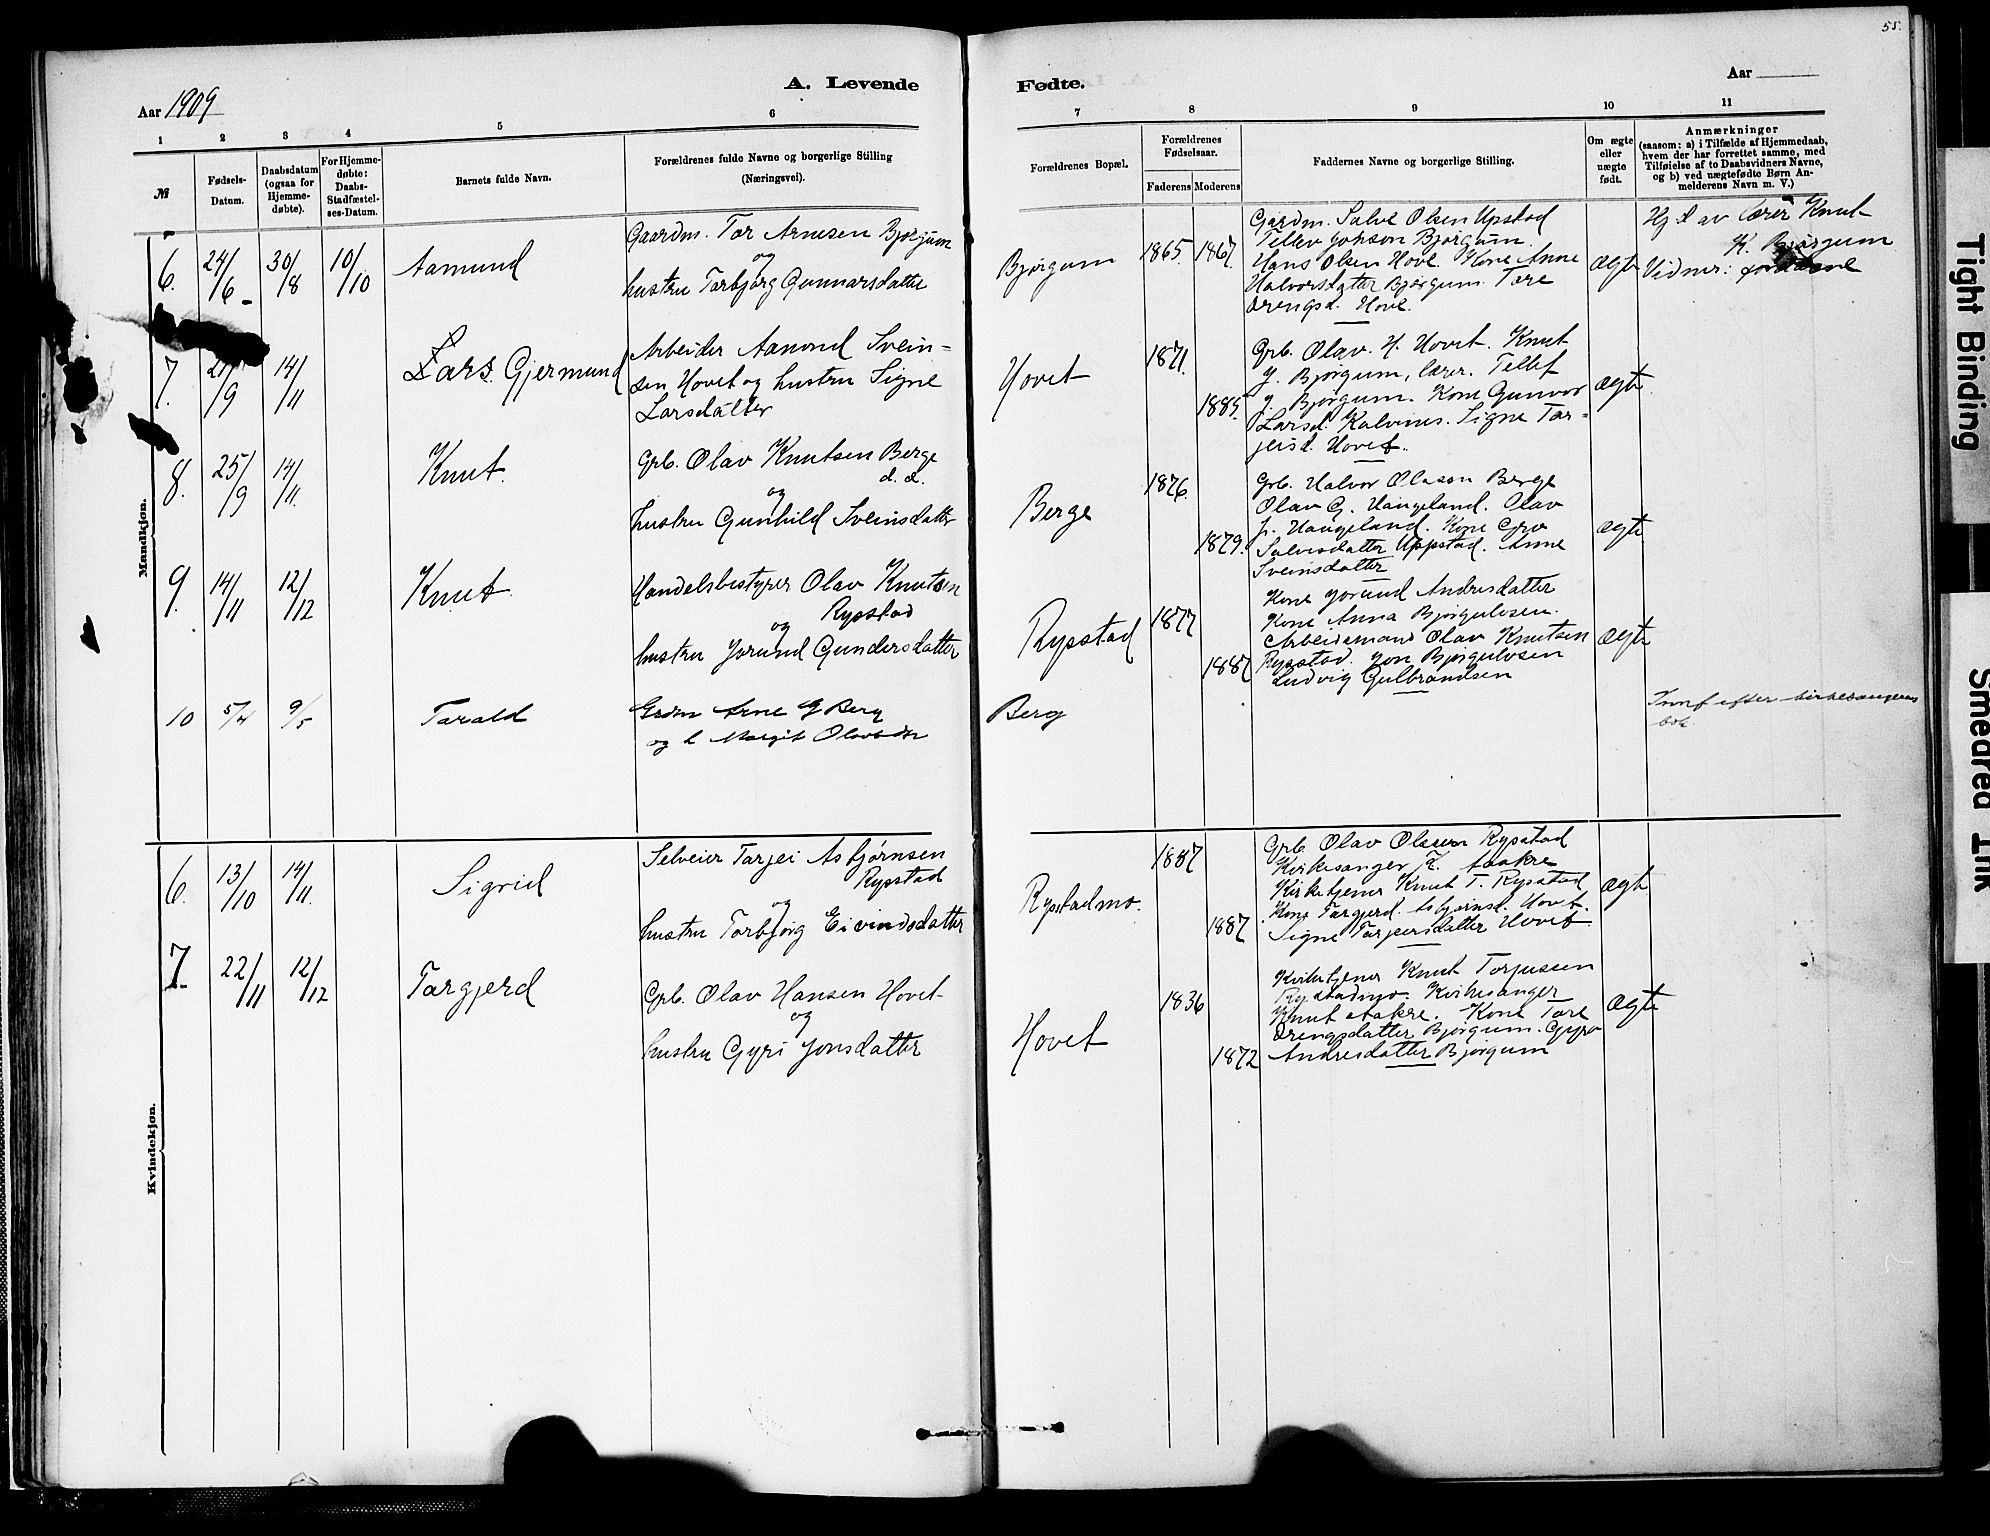 55.
A. Levende
Fødte.
Aar 1909
Aar
1 2 3 4 5 6
7 8 9 10 11
№
Fødsels-Datum.
Daabsdatum (ogsaa for Hjemmedøbte).
For Hjemmedøbte: Daabs-Stadfæstelses-Datum.
Barnets fulde Navn.
Forældrenes fulde Navne og borgerlige Stilling
(Næringsvei).
Forældrenes Bopæl.
Forældrenes Fødselsaar.
Faderens Moderens
Faddernes Navne og borgerlige Stilling.
Om ægte eller uægte født.
Anmærkninger
(saasom: a) i Tilfælde af Hjemmedaab,
hvem der har forrettet samme, med
Tilføielse af to Daabsvidners Navne,
og b) ved uægtefødte Børn An-
melderens Navn m. V.)
Mandkjøn.
6. 24/6 30/8 10/10 Aamund
Gaardm. Tor Arnesen Bjørgum
og
hustru Torbjørg Gunnarsdatter
Bjørgum 1865. 1867.
Gaardm. Salve Olsen Upstad
Tellev Johson Bjørgum.
Hans Olsen Hove. Kone Anne
Halvorsdatter Bjørgum. Tore
Drengsd. Hove.
ægte
Hj. d av Lærer Knut
K. Bjørgum
Vidner:
7. /9 14/11 Lars. Gjermund
Arbeider Aamond Svein-
sen Hovet og hustru Signe
Larsdatter
Hovet 1871. 1885.
Grb. Olav. H. Hovet. Knut
J. Bjørgum, lærer. Tellef
J. Bjørgum. Kone Gunvor
Larsd. Kalvines. Signe Tar-
jeisd. Hovet.
ægte
8. 25/9 14/11. Knut.
Grb. Olav Knutsen Berge
d. d.
og
hustru Gunhild Sveinsdatter
Berge 1876. 1879.
Grb. Halvor Olason Berge
Olav G. Haugeland. Olav
J. Haugeland. Kone Gro
Salvesdatter Uppstad. Anne
Sveinsdatter
ægte
9. 14/11 12/12 Knut.
Handelsbestyrer Olav Knutsen
Rysstad
og
hustru Jorund Gundersdatter
Rysstad 1877 1887
Kone Jorund Andresdatter
Kone Anna Bjørgulvsen.
Arbeidsmand Olav Knutsen
Rysstad. Jon Bjørgulvsen
Ludvig Gulbrandsen
ægte
10 5/4 9/5 Tarald
Grdm Arne G Berg
og h Margit Olavsdtr
Berg
Innf efter kirkesangerens
bok
Kvindekjøn.
6. 13/10 14/11. Sigrid
Selveier Tarjei Asbjørnsen
Rysstad
og
hustru Torbjørg Eivindsdatter
Rysstadmo. 1887 1887
Grb. Olav Olssen Rysstad
Kirkesanger K. Aakre
Kirketjener Knut T. Rysstad
Kone Targjerd. Asbjørnsd. Hovt.
Signe Tarjeisdatter Hovet
ægte
7. 22/11 12/12 Targjerd
Grb. Olav Hansen Hovet
og
hustru Gyri Jonsdatter
Hovet 1836 1872
Kirketjener Knut Torjussen
Rysstadmo. Kirkesanger
Knut Aakre. Kone Tore
Drengsdatter Bjørgum. Gyro
Andresdatter Bjørgum
ægte
Tight Binding
Smeared Ink